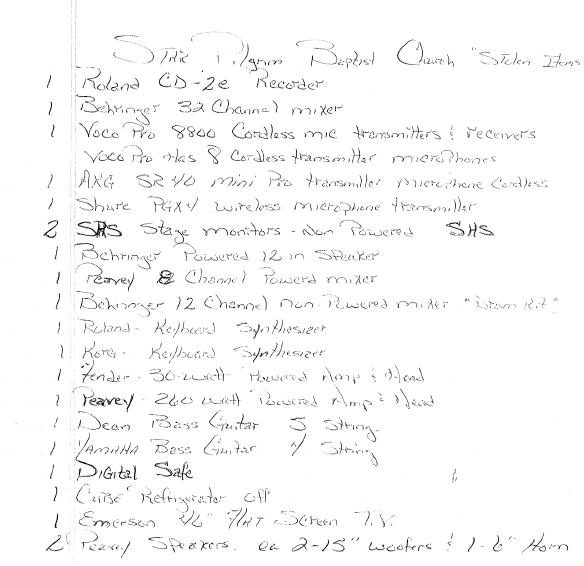 Star Pilgrim Baptist Church "Stolen Items
1 Roland CD-2e Recorder
1 Behringer 32 Channel mixer
1 Voco Pro 8800 Cordless mic transmitters & receivers
Voco Pro Has 8 Cordless transmitter microphones
1 AKG SR 40 mini Pro transmitter microphone Cordless
1 Shure PGX4 wireless microphone transmitter
2 SHS Stage monitors - Non Powered SHS
1 Behringer Powered 12 in Speaker
1 Peavey 8 Channel Powerd mixer
1 Behringer 12 Channel non-Powered mixer "Drum Kit"
1 Roland - Keyboard Synthesizer
1 Korg - Keyboard Synthesizer
1 Fender - 30-watt Powered Amp & Head
1 Peavey - 260 watt Powered Amp & Head
1 Dean Bass Guitar 5 String
1 YAMAHA Bass Guitar 4 String
1 Digital Safe
1 Cube Refrigerator off
1 Emerson 46" Flat Screen T.V.
2 Peavey Speakers. ea 2-15" woofers & 1-6" Horn